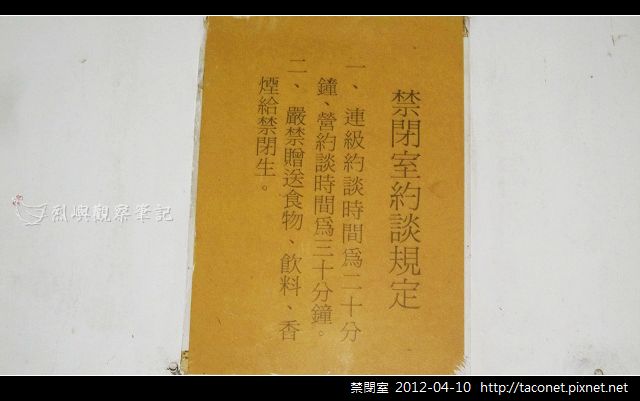 禁閉室約談規定
一、連級約談時間爲二十分
鐘、營約談時間爲三十分鐘。
二、嚴禁贈送食物、飲料、香
煙給禁閉生。
亂與觀察筆記
禁閉室 2012-04-10 http://taconet.pixnet.net